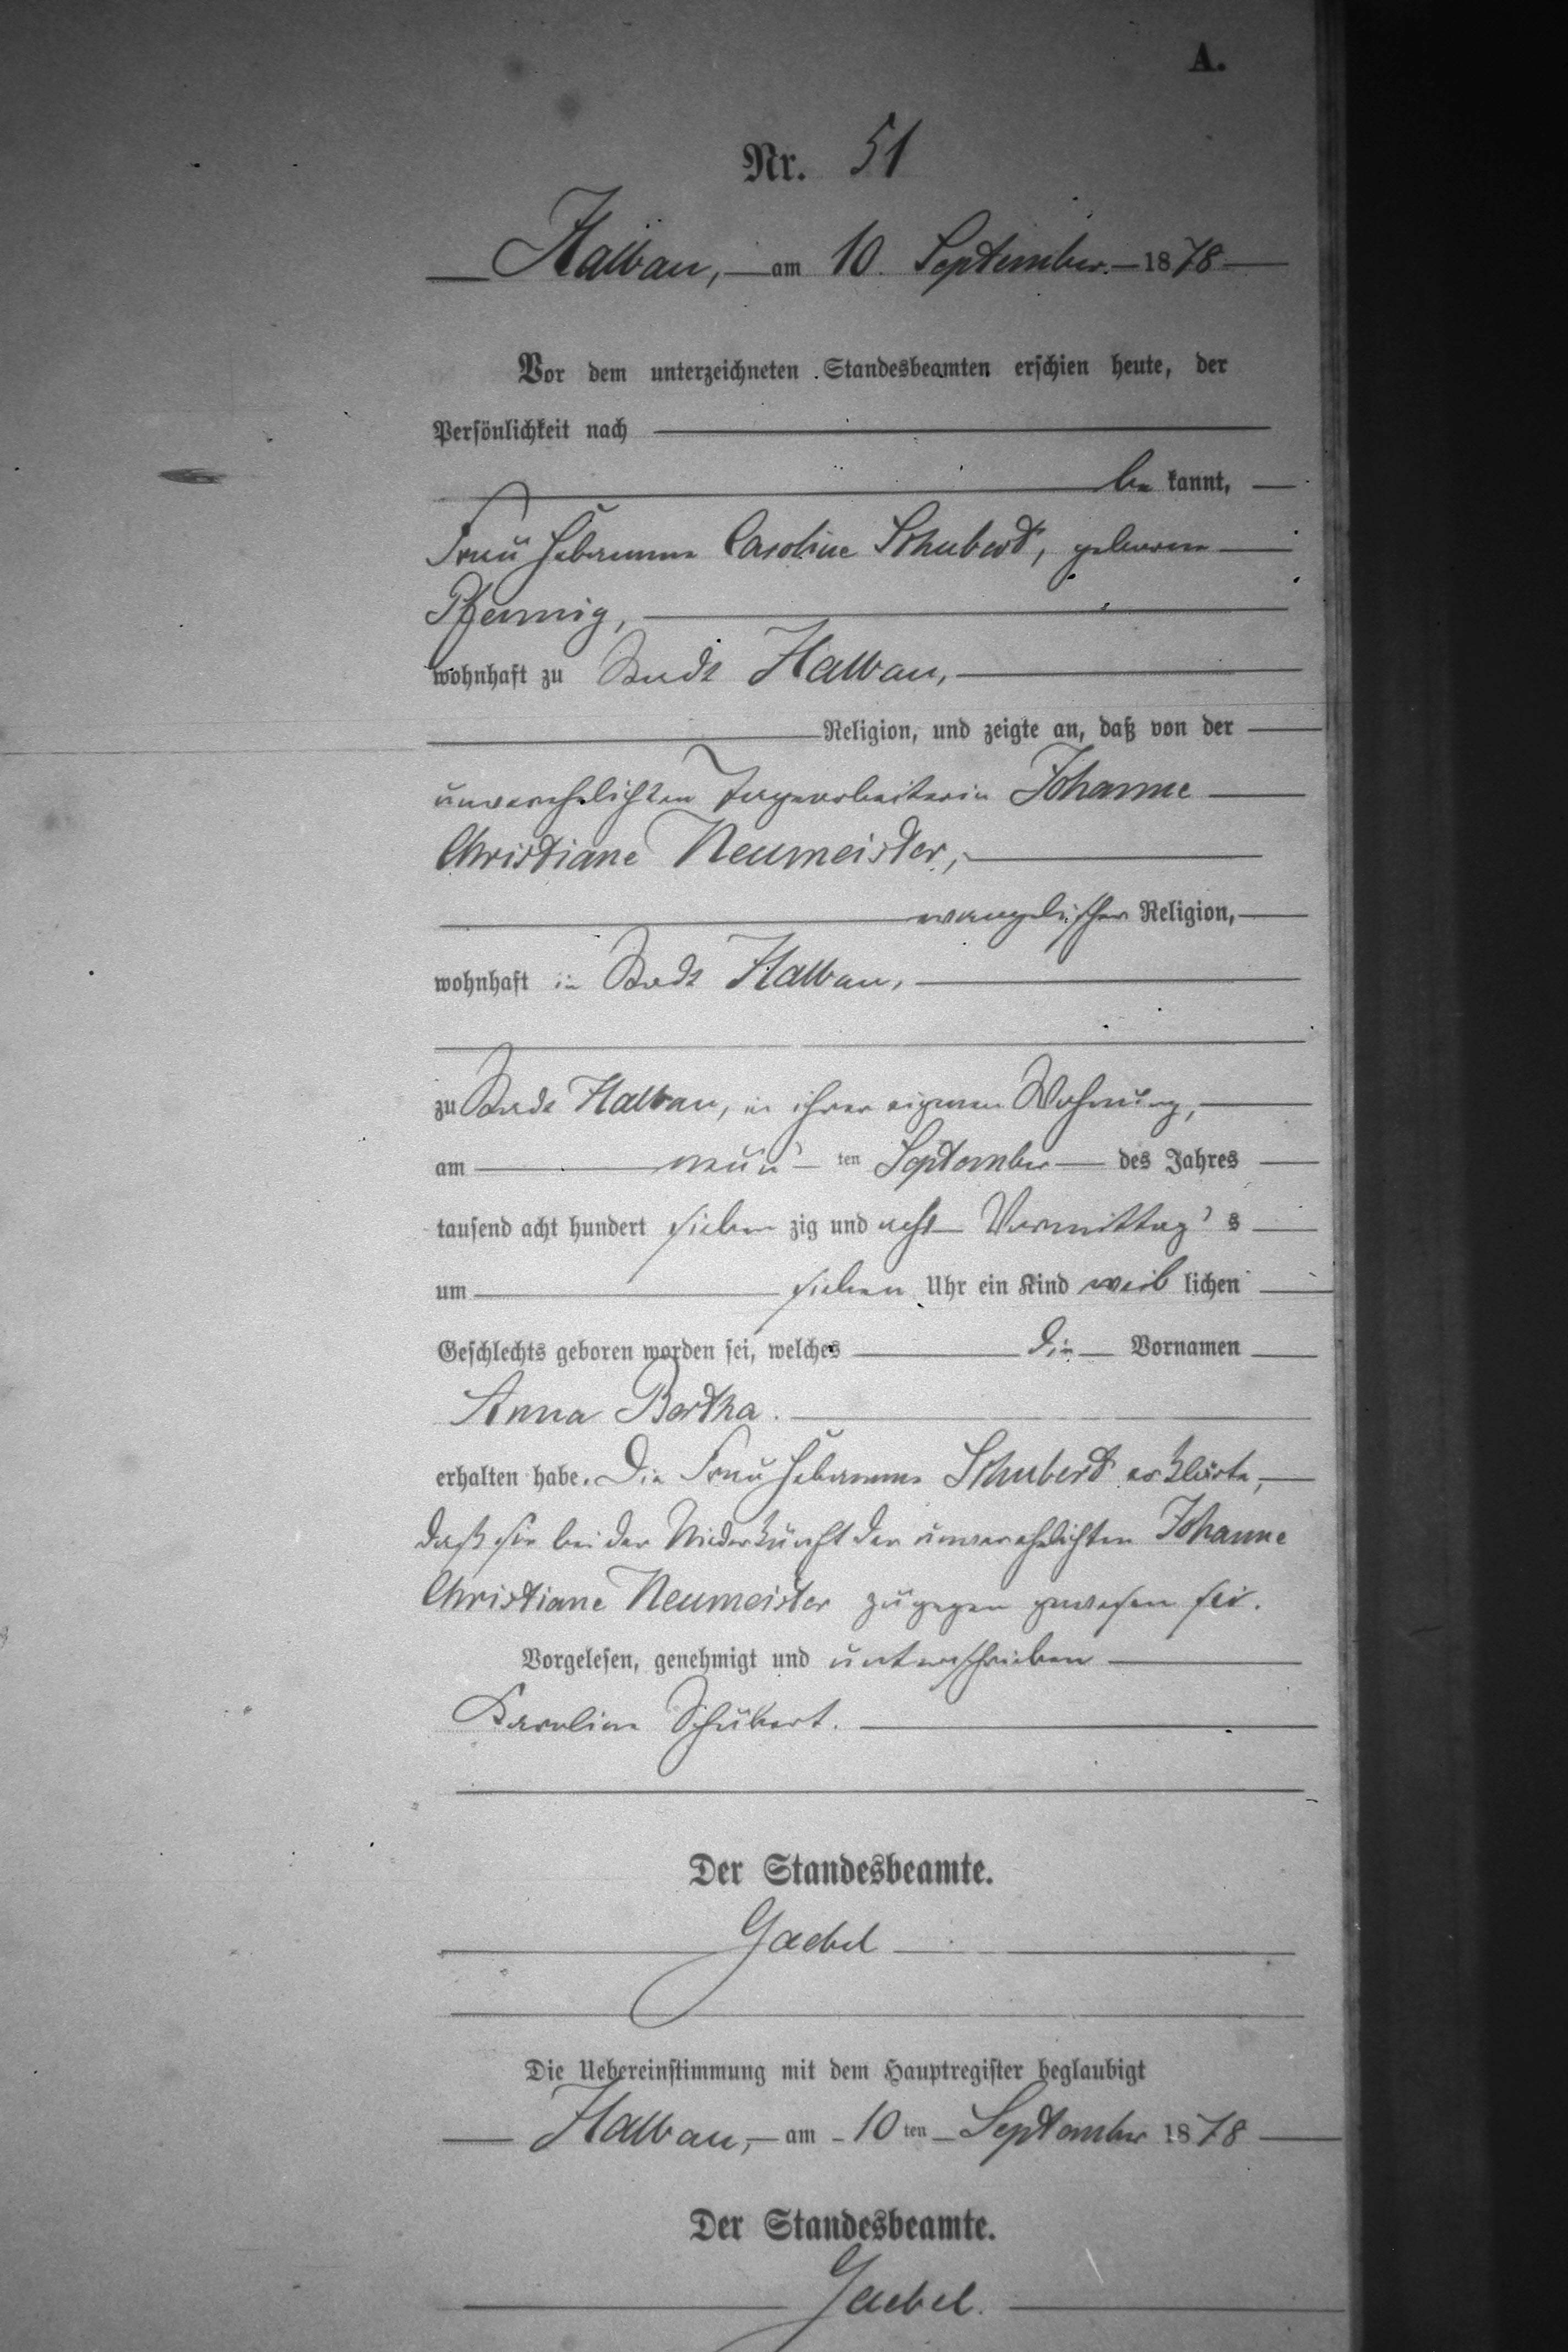 A.
Nr. 51
Halbau, am 10. September 1878
Vor dem unterzeichneten Standesbeamten erschien heute, der
Persönlichkeit nach
be kannt,
Frau Hebamme Caroline Schubert, geborene
Pfennig,
wohnhaft zu Stadt Halbau,
Religion, und zeigte an, daß von der
unverehelichten Tagearbeiterin Johanne
Christiane Neumeister,
evangelischer Religion,
wohnhaft in Stadt Halbau,
zu Stadt Halbau, in ihrer eigenen Wohnung,
am neun ten September des Jahres
tausend acht hundert sieben zig und acht Vormittag s
um sieben Uhr ein Kind weib lichen
Geschlechts geboren worden sei, welches die Vornamen
Anna Bertha.
erhalten habe. Die Frau Hebamme Schubert erklärte,
daß sie bei der Niederkunft der unverehelichten Johanne
Christiane Neumeister zugegen gewesen sei.
Vorgelesen, genehmigt und unterschrieben
Karoline Schubert.
Der Standesbeamte.
Gaebel
Die Uebereinstimmung mit dem Hauptregister beglaubigt
Halbau, am 10 ten September 1878
Der Standesbeamte.
Gaebel.